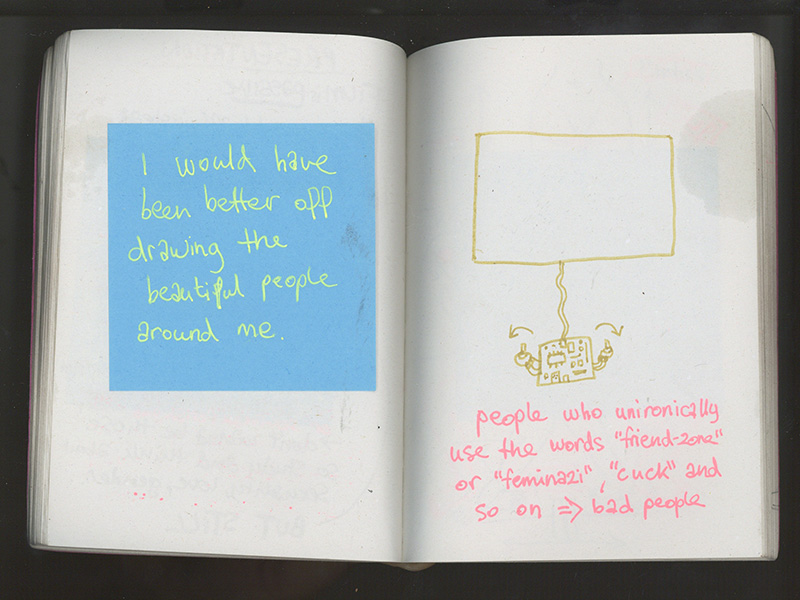 I would have
been better off
drawing the
beautiful people
around me.
people who unironically
use the words "friend-zone"
or "feminazi", "cuck" and
so on => bad people